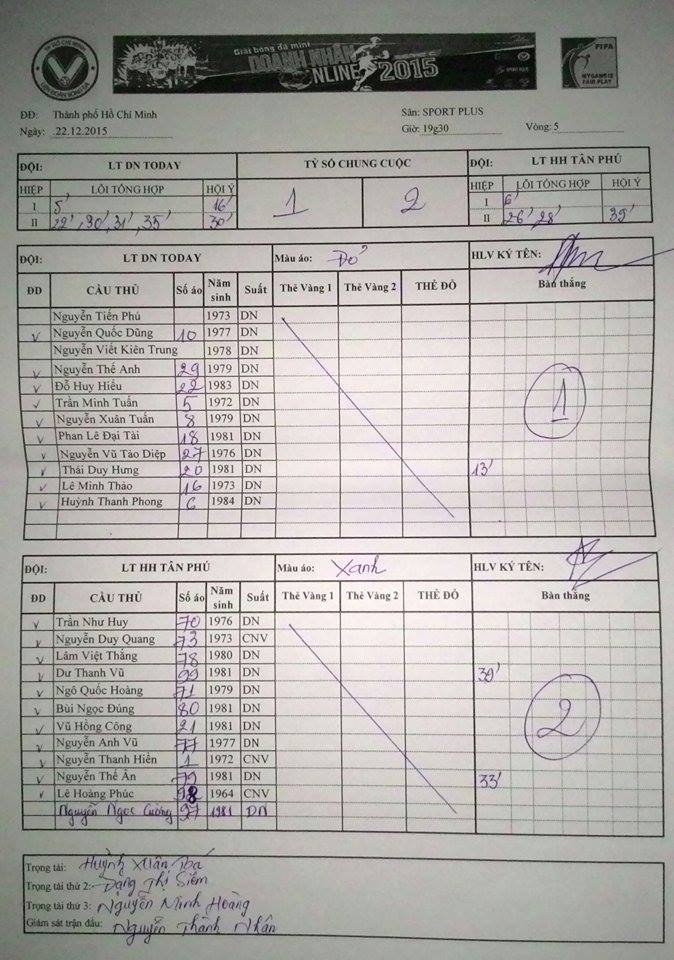 TP HỒ CHÍ MINH
LIÊN ĐOÀN BÓNG ĐÁ
Giải bóng đá mini
DOANH NHÂN
ONLINE 2015
SPORT PLUS
FIFA
MY GAME IS
FAIR PLAY
ĐĐ: Thành phố Hồ Chí Minh Sân: SPORT PLUS
Ngày: 22.12.2015 Giờ: 19g30 Vòng: 5
ĐỘI: LT DN TODAY TỶ SỐ CHUNG CUỘC ĐỘI: LT HH TÂN PHÚ
HIỆP LỖI TỔNG HỢP HỘI Ý 1 2 HIỆP LỖI TỔNG HỢP HỘI Ý
I 5' 16' I 6'
II 22', 30', 31', 35' 30' II 26' 28' 39'
ĐỘI: LT DN TODAY Màu áo: Đỏ HLV KÝ TÊN:
ĐD CẦU THỦ Số áo Năm sinh Suất Thẻ Vàng 1 Thẻ Vàng 2 THẺ ĐỎ Bàn thắng
Nguyễn Tiến Phú 1973 DN
v Nguyễn Quốc Dũng 10 1977 DN
Nguyễn Viết Kiên Trung 1978 DN
v Nguyễn Thế Anh 29 1979 DN
v Đỗ Huy Hiếu 22 1983 DN
v Trần Minh Tuấn 5 1972 DN
v Nguyễn Xuân Tuấn 8 1979 DN
v Phan Lê Đại Tài 18 1981 DN
v Nguyễn Vũ Tào Diệp 27 1976 DN
v Thái Duy Hưng 20 1981 DN 13'
v Lê Minh Thảo 16 1973 DN
v Huỳnh Thanh Phong 6 1984 DN
1
ĐỘI: LT HH TÂN PHÚ Màu áo: Xanh HLV KÝ TÊN:
ĐD CẦU THỦ Số áo Năm sinh Suất Thẻ Vàng 1 Thẻ Vàng 2 THẺ ĐỎ Bàn thắng
v Trần Như Huy 70 1976 DN
v Nguyễn Duy Quang 73 1973 CNV
v Lâm Việt Thắng 78 1980 DN
v Dư Thanh Vũ 99 1981 DN 39'
v Ngô Quốc Hoàng 71 1979 DN
v Bùi Ngọc Đúng 80 1981 DN
v Vũ Hồng Công 21 1981 DN
v Nguyễn Anh Vũ 77 1977 DN
v Nguyễn Thanh Hiền 1 1972 CNV
v Nguyễn Thế Ân 79 1981 DN 33'
v Lê Hoàng Phúc 98 1964 CNV
Nguyễn Ngọc Cường 97 1981 DN
2
Trọng tài: Huỳnh Xuân
Trọng tài thứ 2: Đặng Thị Siêm
Trọng tài thứ 3: Nguyễn Minh Hoàng
Giám sát trận đấu: Nguyễn Thành Nhân